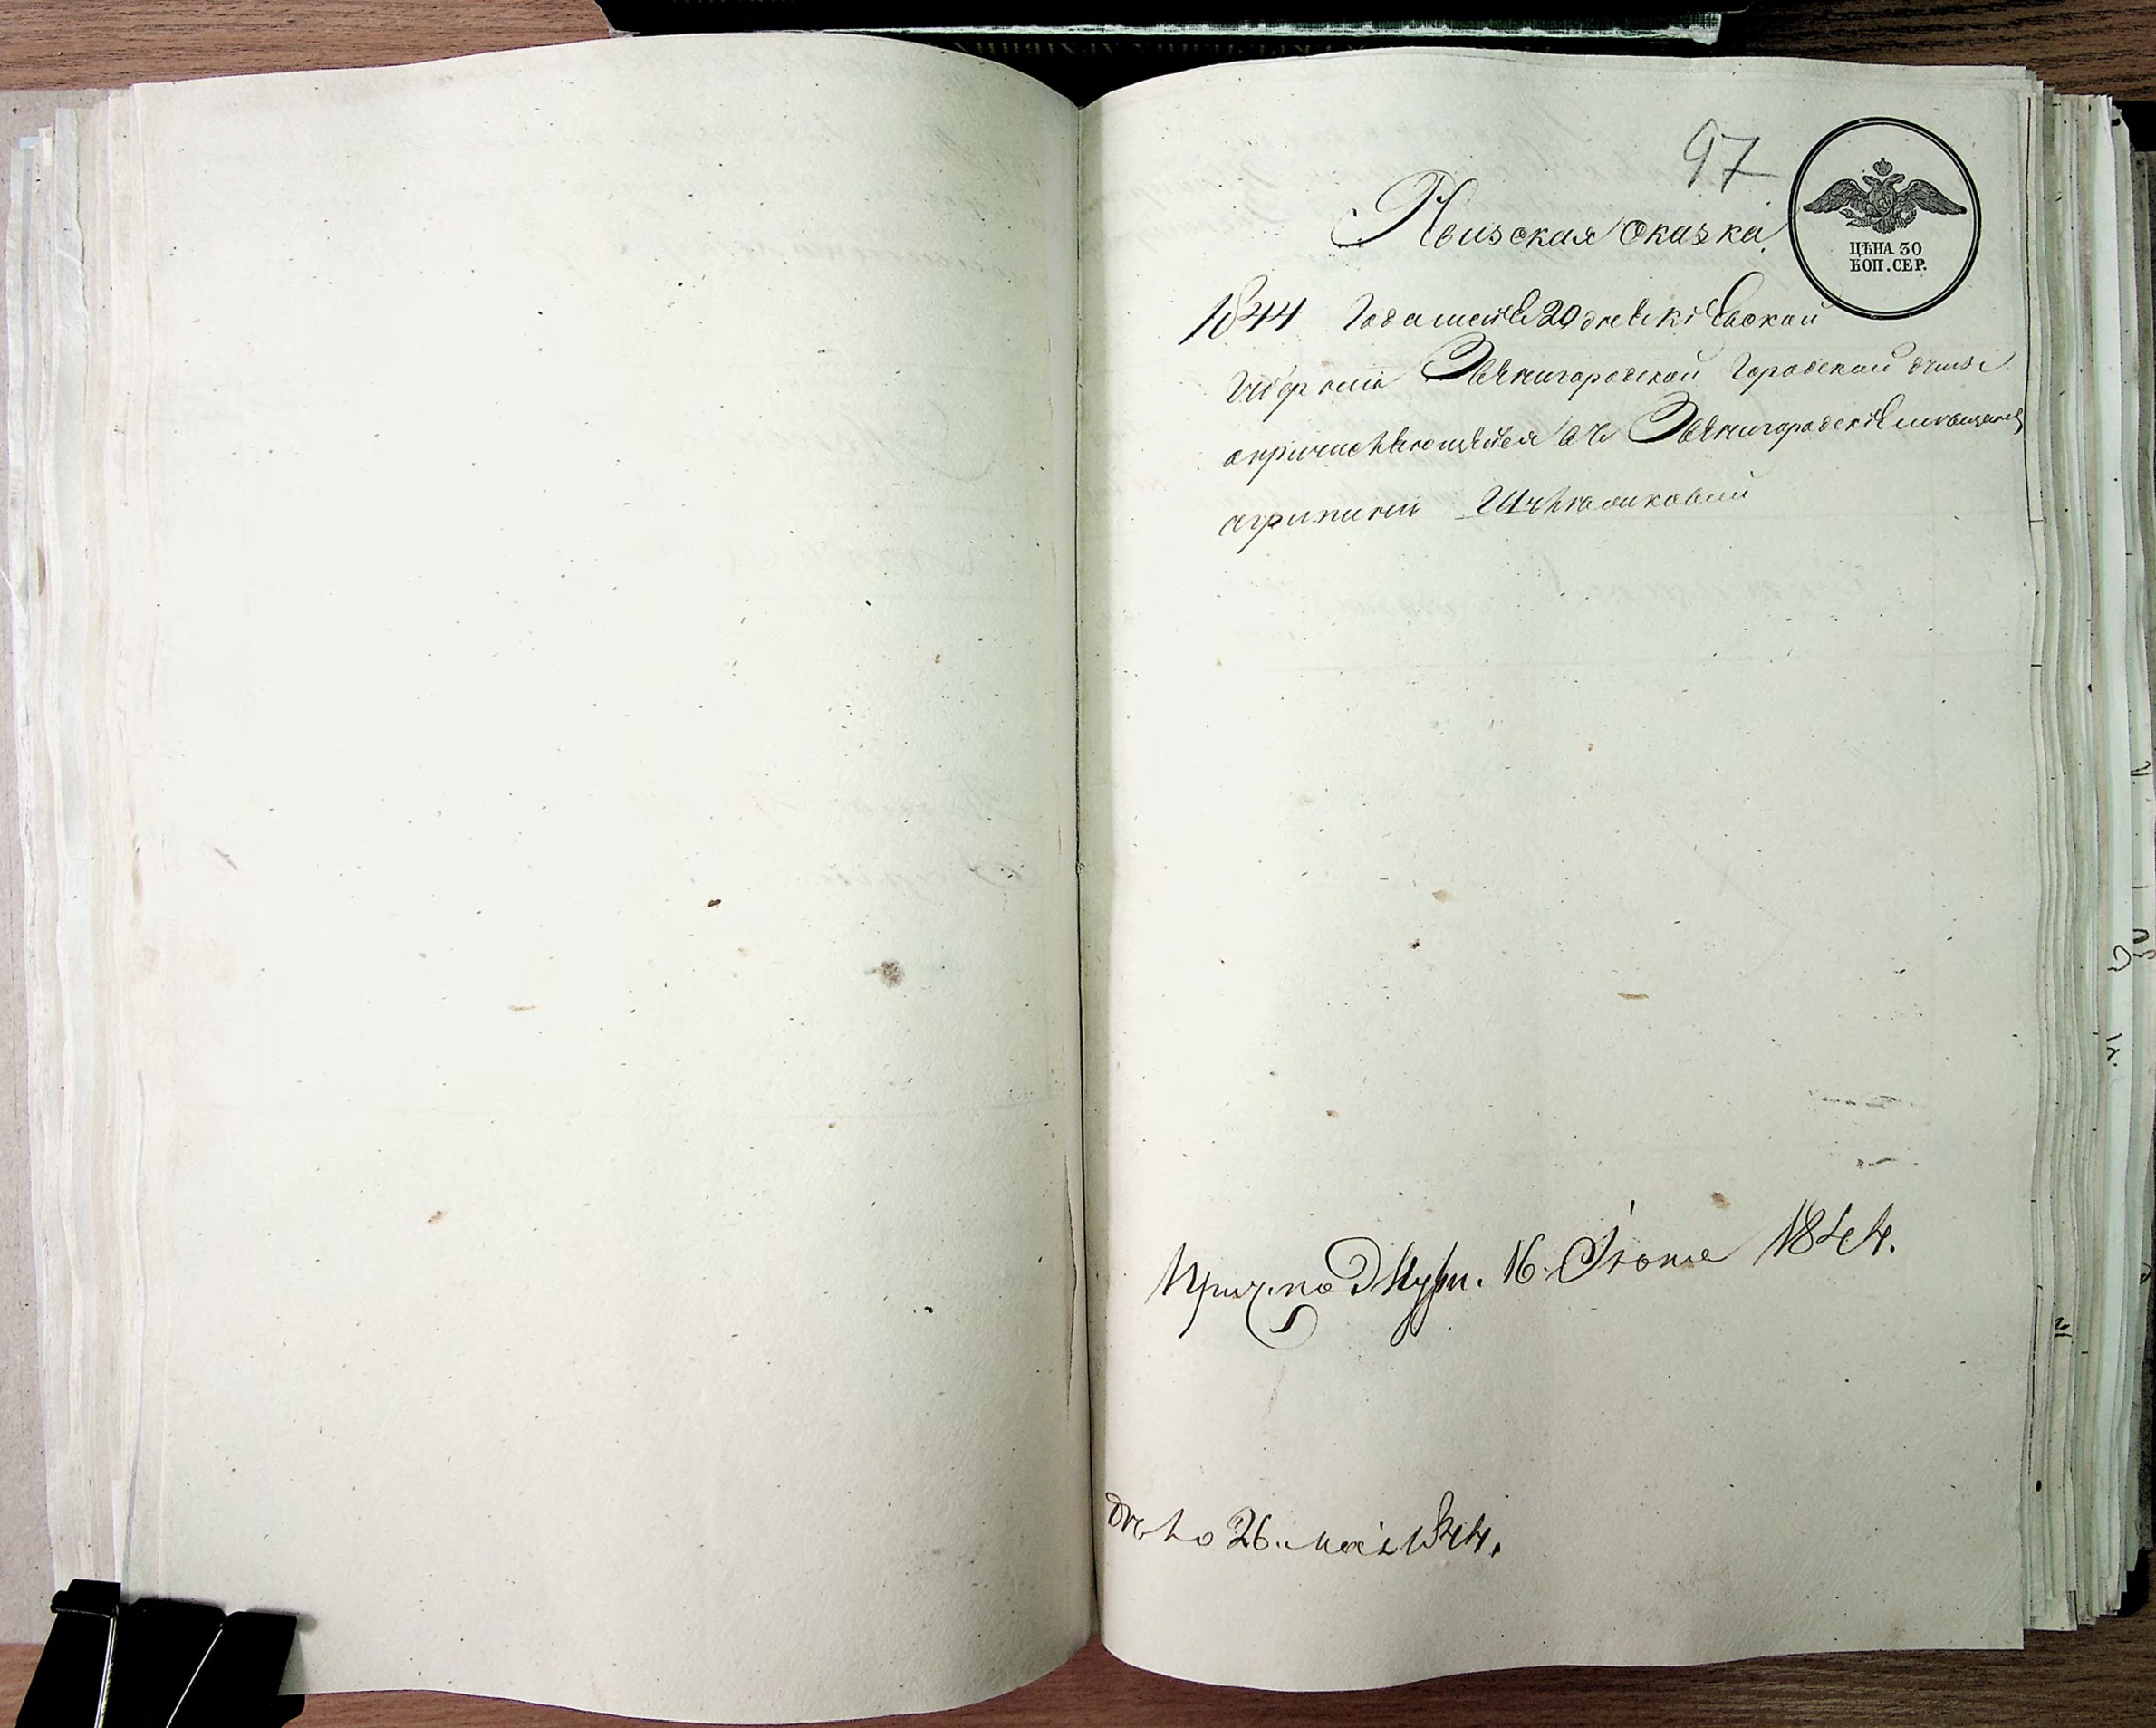 97
Ревизская Сказка
ЦѢНА 30
КОП. СЕР.
1844 Года маія 20 дня Кіевской
Губерніи Звенигородской Городской думы
о причисляющейся въ Звенигородскіе мещане
Агрипини
Прич. по 16 Іюня 1844.
26 маія 1844.